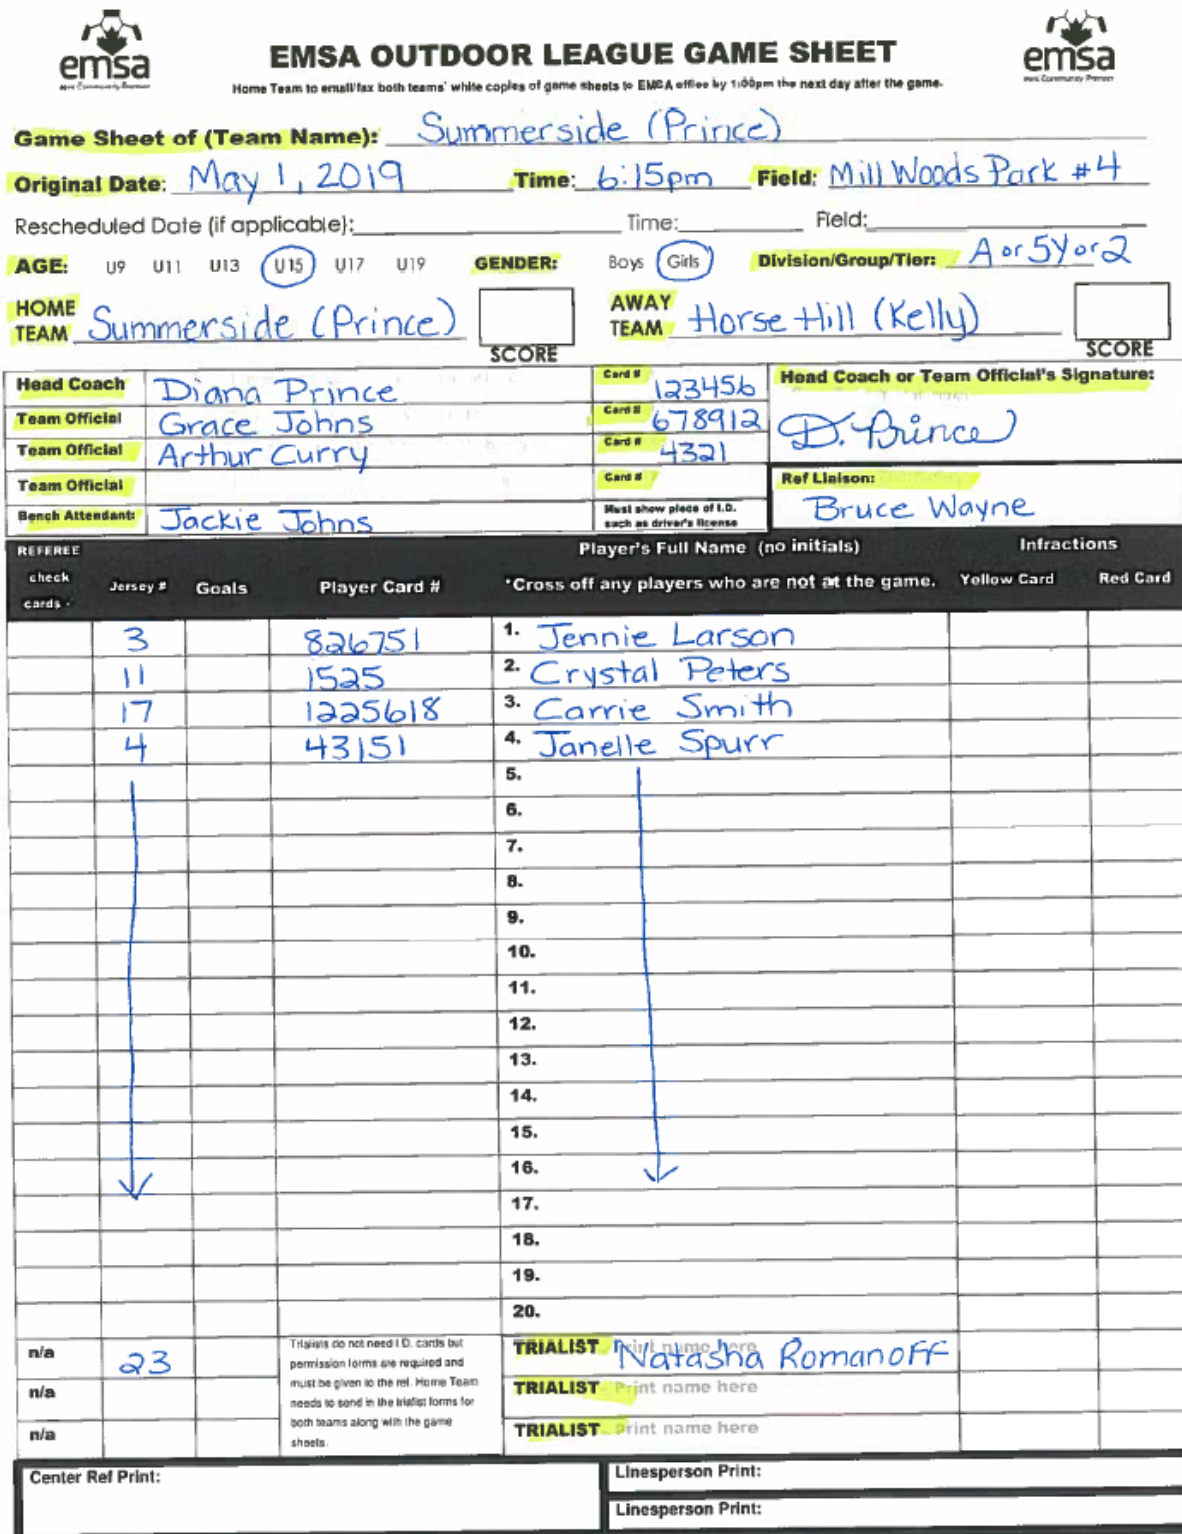 emsa
EMSA OUTDOOR LEAGUE GAME SHEET
emsa
Home Team to email/fax both teams' white copies of game sheets to EMSA office by 1:00pm the next day after the game.
Game Sheet of (Team Name): Summerside (Prince)
Original Date: May 1, 2019 Time: 6:15pm Field: Mill Woods Park #4
Rescheduled Date (if applicable): Time: Field:
AGE: U9 U11 U13 U15 U17 U19 GENDER: Boys Girls Division/Group/Tier: A or 5Y or 2
HOME TEAM Summerside (Prince) SCORE AWAY TEAM Horse Hill (Kelly) SCORE
Head Coach Diana Prince Card # 123456 Head Coach or Team Official's Signature:
Team Official Grace Johns Card # 678912 D. Prince
Team Official Arthur Curry Card # 4321
Team Official Card # Ref Liaison:
Bench Attendant: Jackie Johns Must show piece of I.D. such as driver's license Bruce Wayne
REFEREE check cards Jersey # Goals Player Card # Player's Full Name (no initials) Infractions
*Cross off any players who are not at the game. Yellow Card Red Card
3 826751 1. Jennie Larson
11 1525 2. Crystal Peters
17 1225618 3. Carrie Smith
4 43151 4. Janelle Spurr
5.
6.
7.
8.
9.
10.
11.
12.
13.
14.
15.
16.
17.
18.
19.
20.
n/a 23 TRIALIST Print name here Natasha Romanoff
n/a TRIALIST Print name here
n/a TRIALIST Print name here
Trialists do not need I.D. cards but
permission forms are required and
must be given to the ref. Home Team
needs to send in the trialist forms for
both teams along with the game
sheets.
Center Ref Print: Linesperson Print:
Linesperson Print: